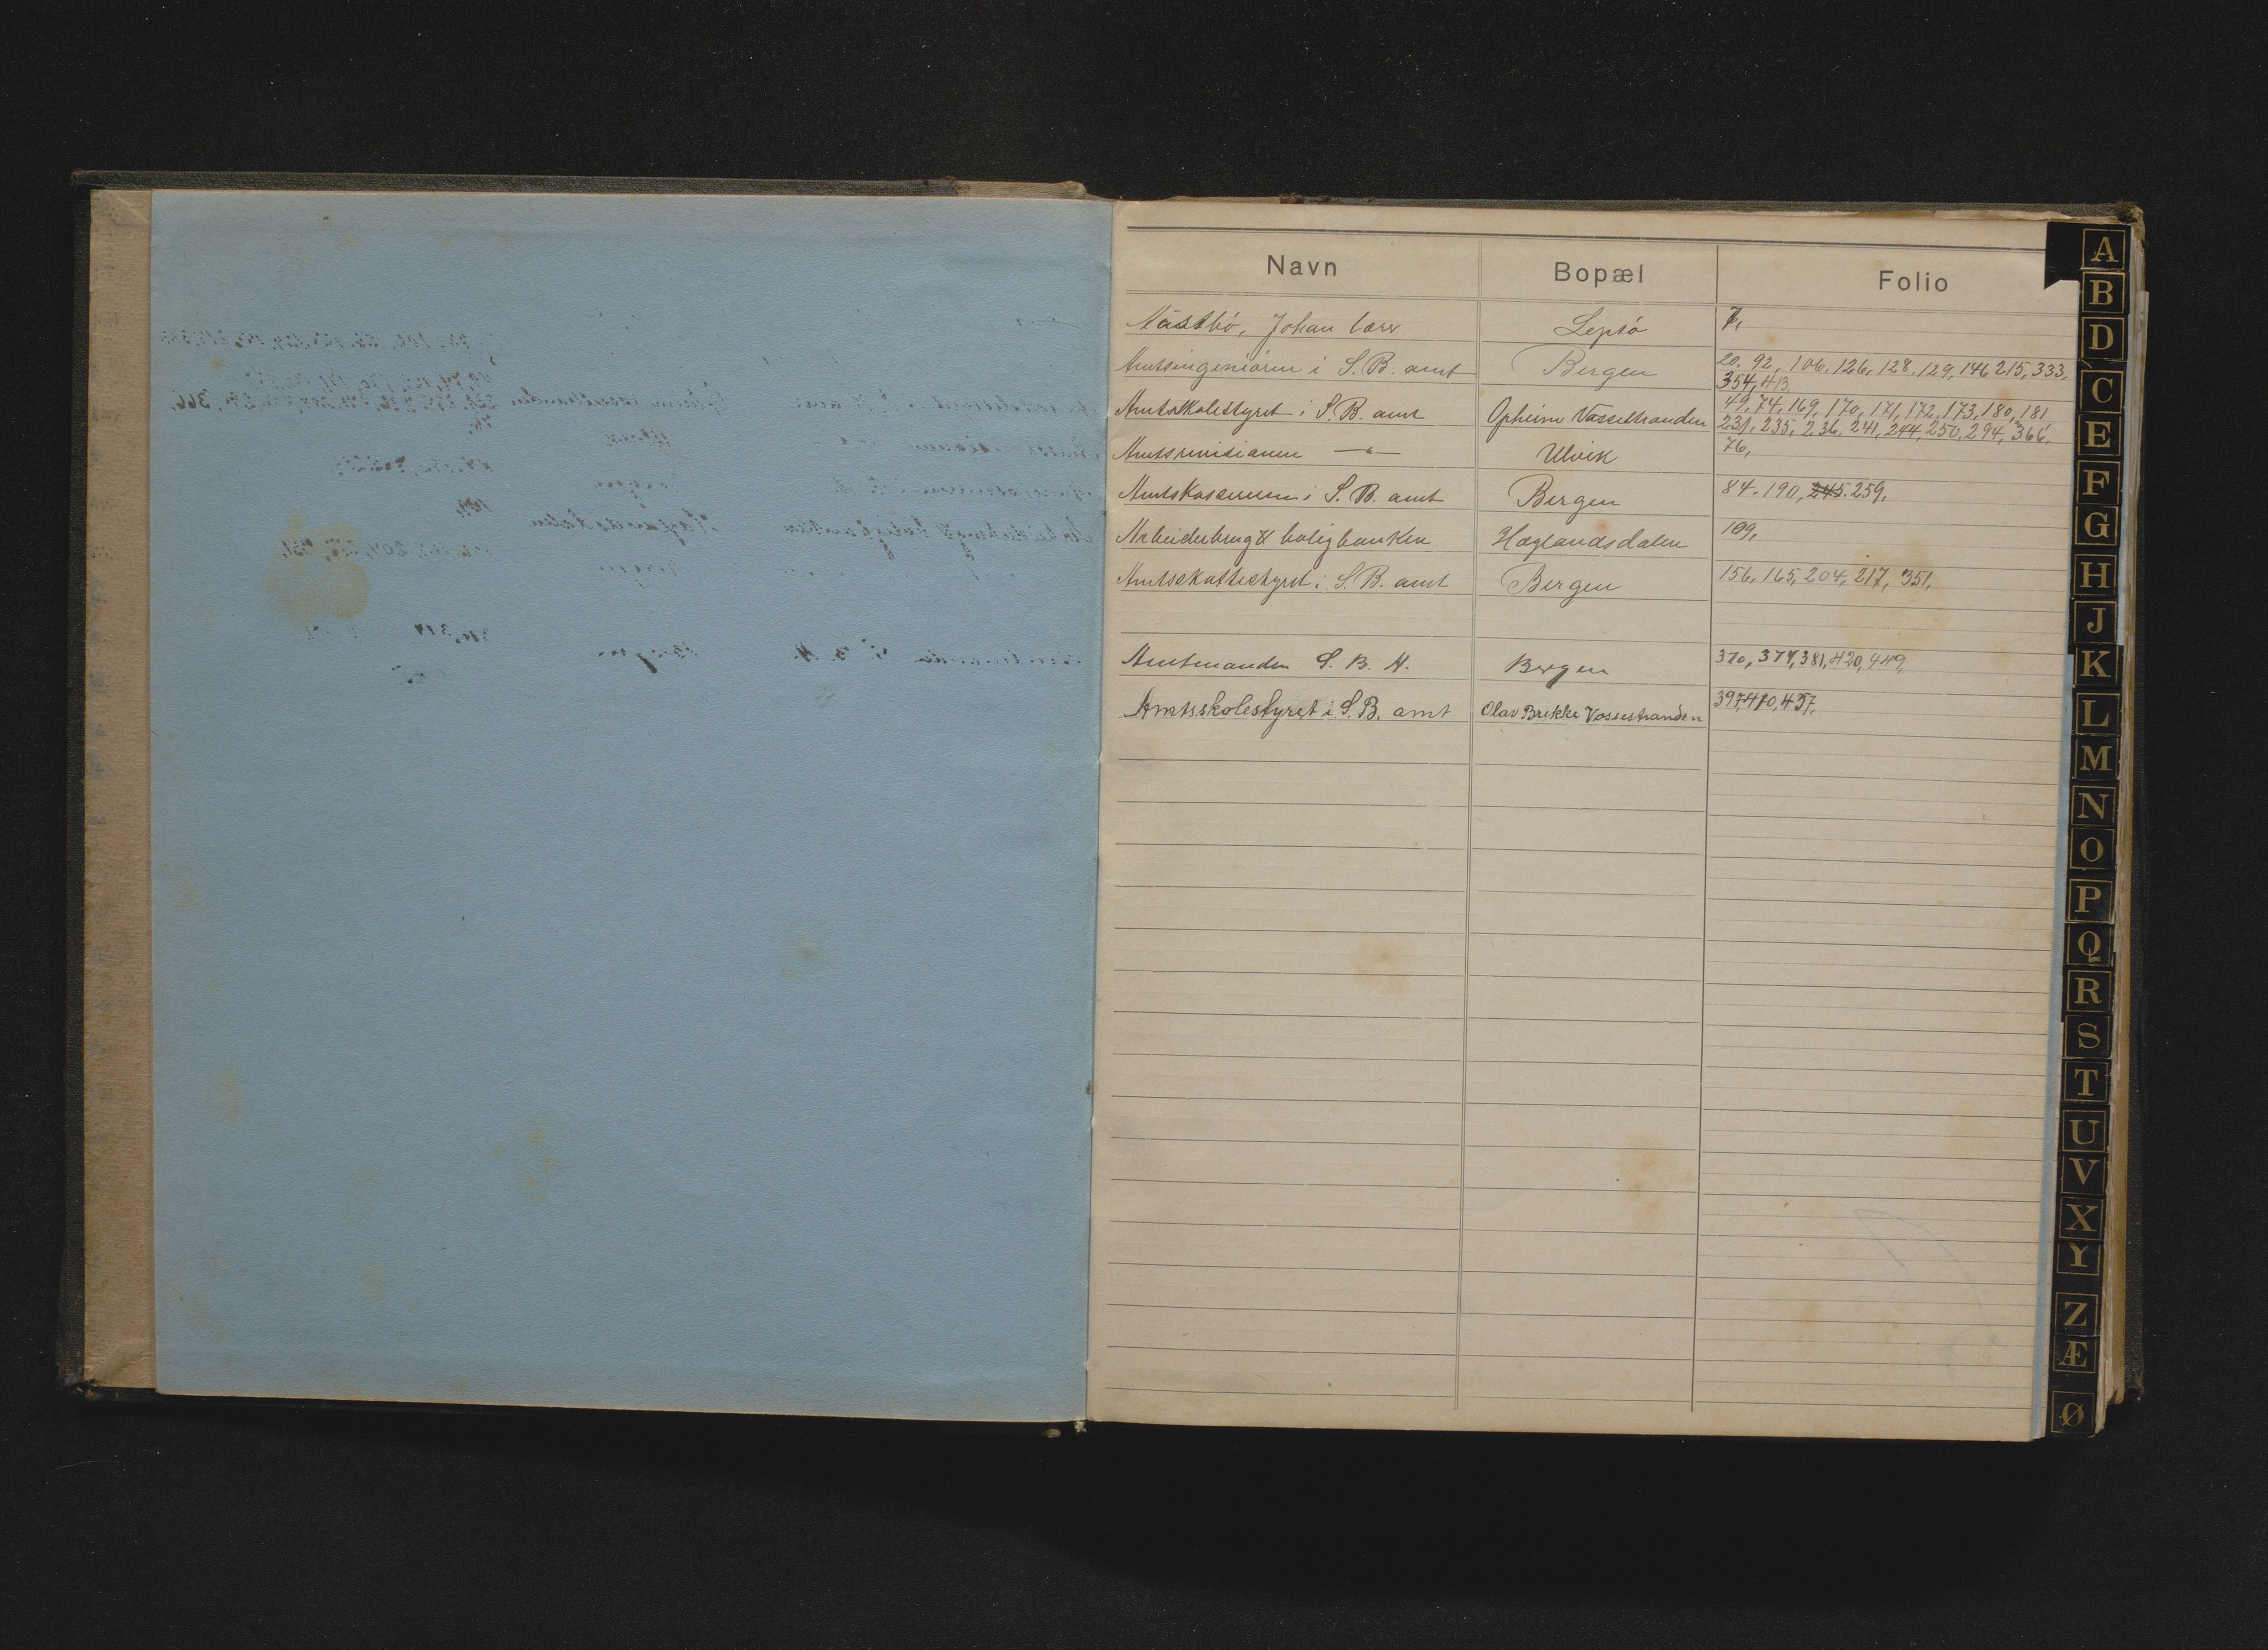 Navn Bopæl Folio
Aastbö, Johan Lars Lepsö 7,
Amtsingeniören i S. B. amt Bergen 20, 92, 106, 126, 128, 129, 146 215, 333,
354, 413.
Amtsskolestyret i S. B. amt Opheim Vossestranden 49, 74, 169, 170, 171, 172, 173, 180, 181
231, 235, 236, 241, 244, 250, 294, 366,
Amtsrevisionen —"— Ulvik 76,
Amtskasserern i S. B. amt Bergen 84. 190, 245. 259,
Arbeiderbrug & boligbanken Haglandsdalen 109,
Amtsskattestyret i S. B. amt Bergen 156, 165, 204, 217, 351,
Amtmanden S. B. A. Bergen 370, 374, 381, 420, 449,
Amtsskolestyret i S. B. amt Olav Brekke Vossestranden 397, 410, 437,
A
B
D
C
E
F
G
H
J
K
L
M
N
O
P
Q
R
S
T
U
V
X
Y
Z
Æ
Ø